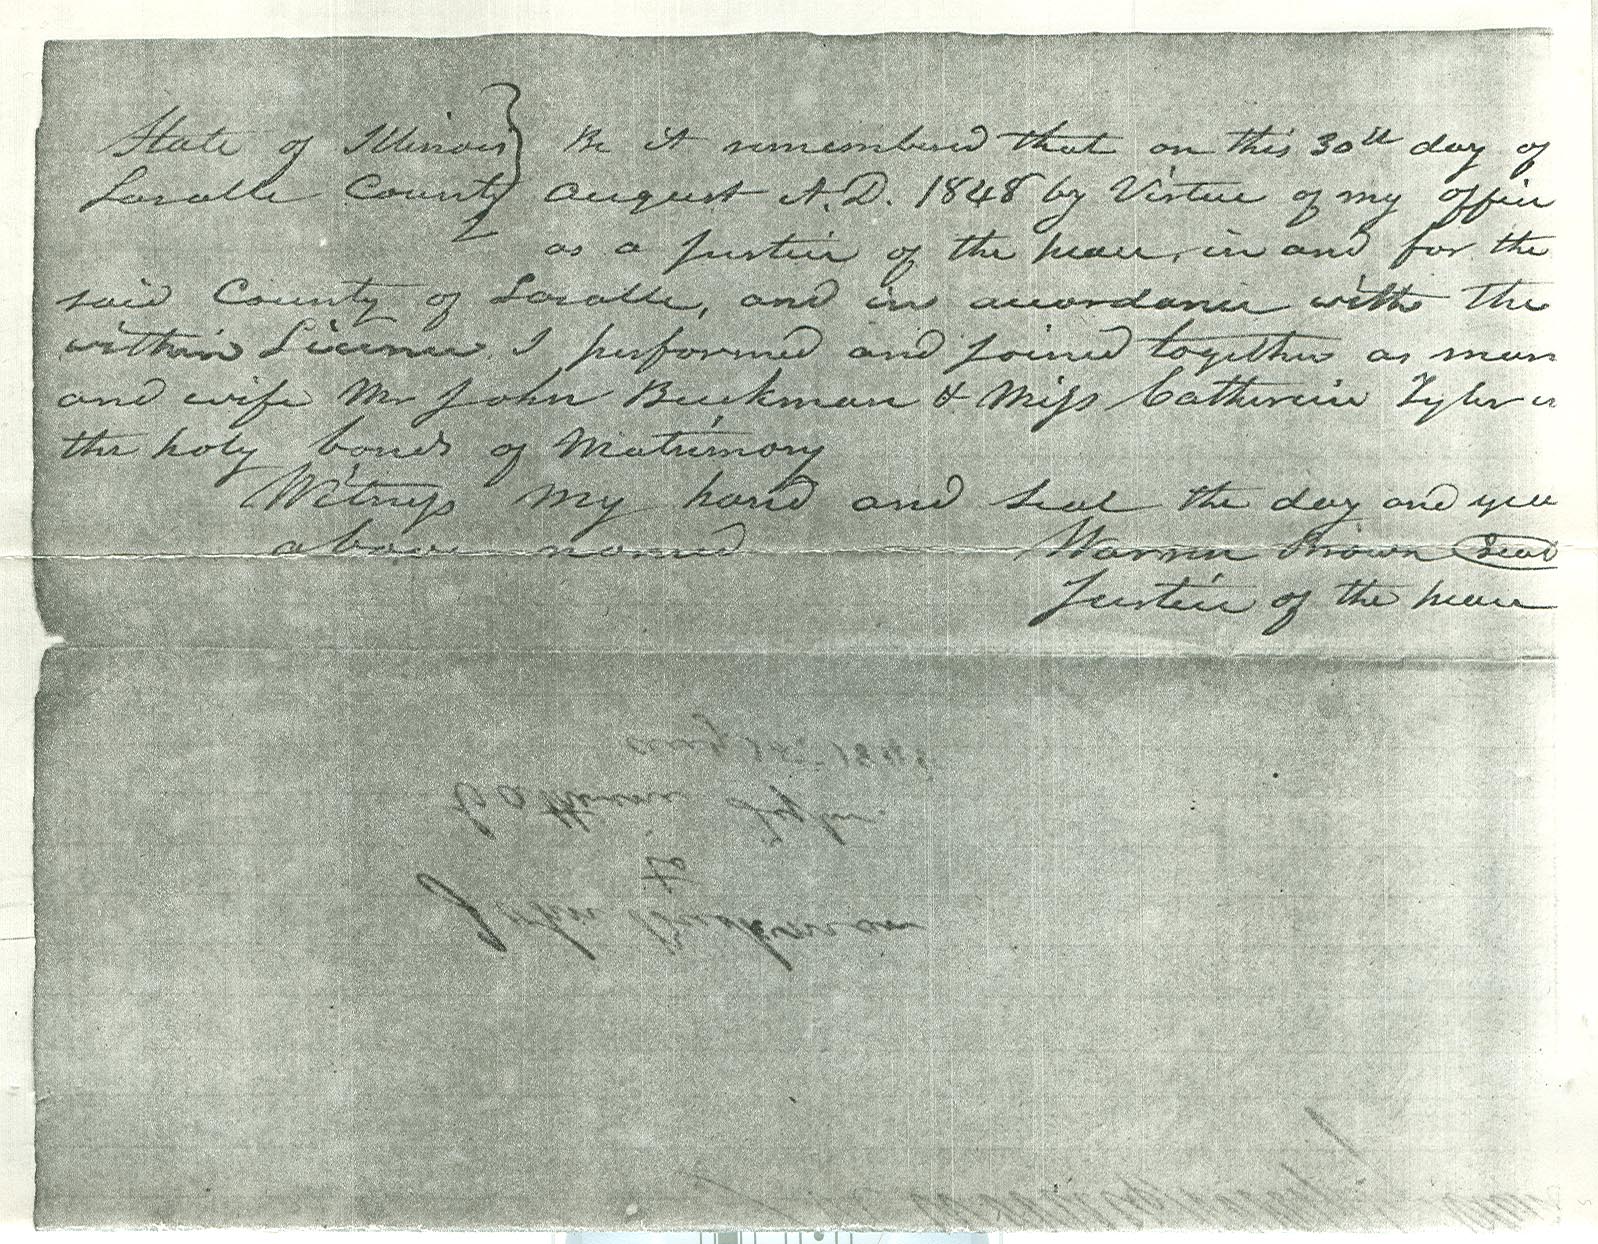 State of Illinois } Be it remembered that on this 30th day of
Lasalle County } August A.D. 1848 by Virtue of my office
as a Justice of the peace, in and for the
said County of Lasalle, and in accordance with the
within License I performed and joined together as man
and wife Mr John Beekman & Miss Catherine Tyler in
the holy bonds of Matrimony
Witness my hand and seal the day and year
above named Warren Brown Seal
Justice of the peace
John Beekman
to
Catherine Tyler.
Aug 30th 1848